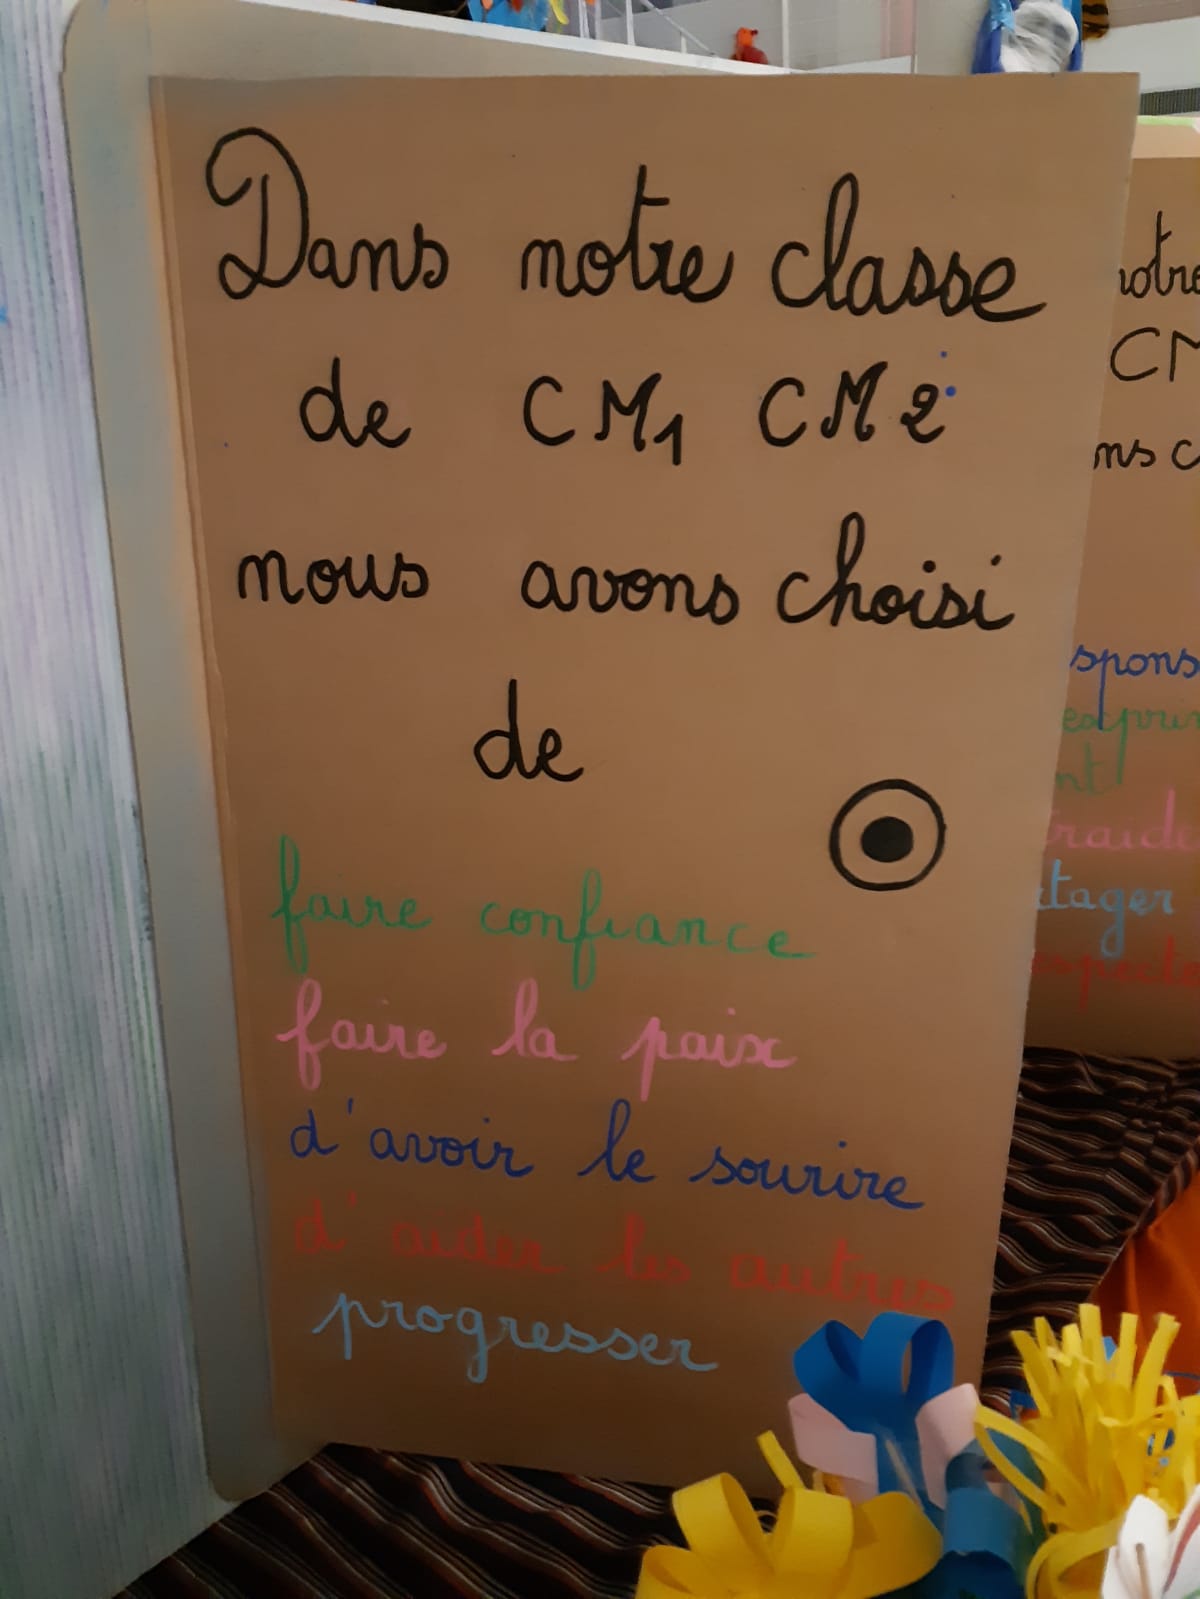 Dans notre classe
de CM1 CM2
nous avons choisi
de
faire confiance
faire la paix
d'avoir le sourire
d'aider les autres
progresser
notre
CM
ns c
spons
exprim
nt
raide
tager
specte